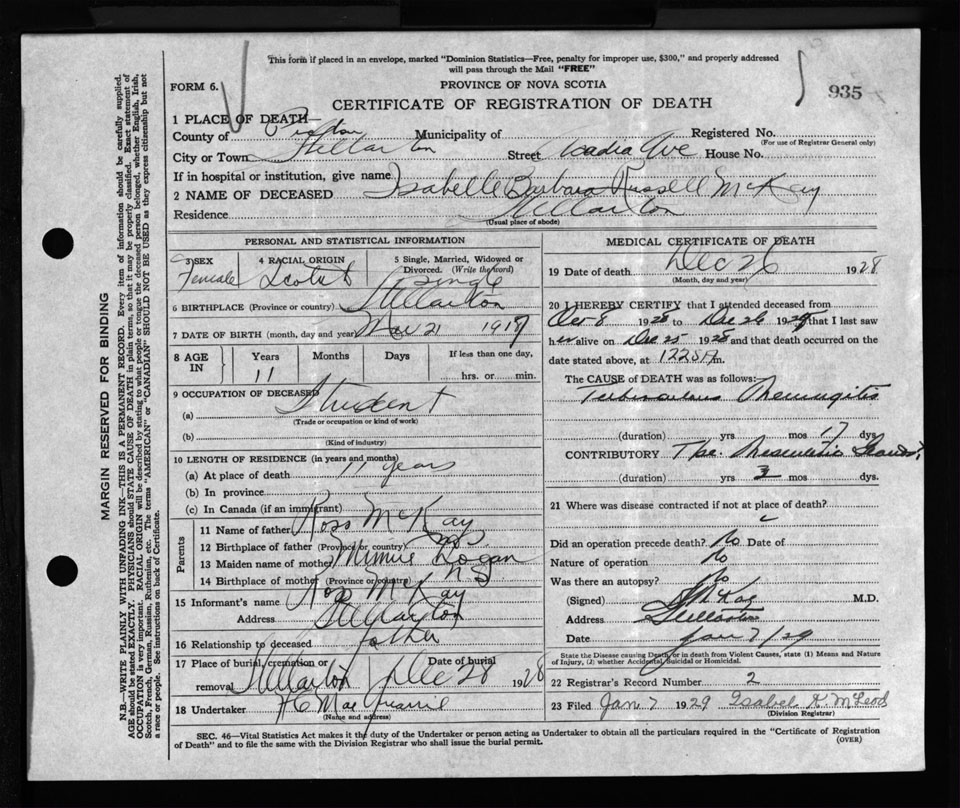 This form if placed in an envelope, marked "Dominion Statistics—Free, penalty for improper use, $300," and properly addressed
will pass through the Mail "FREE"
FORM 6.
PROVINCE OF NOVA SCOTIA
935
CERTIFICATE OF REGISTRATION OF DEATH
1 PLACE OF DEATH—
County of Pictou Municipality of Registered No.
(For use of Registrar General only)
City or Town Stellarton Street Acadia Ave House No.
If in hospital or institution, give name
2 NAME OF DECEASED Isabelle Barbara Russell McKay
Residence Stellarton
(Usual place of abode)
PERSONAL AND STATISTICAL INFORMATION
3 SEX 4 RACIAL ORIGIN 5 Single, Married, Widowed or
Divorced. (Write the word)
Female Scotch Single
6 BIRTHPLACE (Province or country) Stellarton
7 DATE OF BIRTH (month, day and year) Mar 21 1917
8 AGE IN Years Months Days If less than one day,
11 hrs. or min.
9 OCCUPATION OF DECEASED
(a) Student
(Trade or occupation or kind of work)
(b)
(Kind of industry)
10 LENGTH OF RESIDENCE (in years and months)
(a) At place of death 11 years
(b) In province
(c) In Canada (if an immigrant)
Parents
11 Name of father Ross McKay
12 Birthplace of father (Province or country) N S
13 Maiden name of mother Minnie Logan
14 Birthplace of mother (Province or country) N S
15 Informant's name Ross McKay
Address Stellarton
16 Relationship to deceased father
17 Place of burial, cremation or Date of burial
removal Stellarton Dec 28 1928
18 Undertaker
(Name and address)
MEDICAL CERTIFICATE OF DEATH
19 Date of death Dec 26 1928
(Month, day and year)
20 I HEREBY CERTIFY that I attended deceased from
Oct 8 1928 to Dec 26 1928 that I last saw
her alive on Dec 25 1928 and that death occurred on the
date stated above, at 1225 m.
The CAUSE OF DEATH was as follows:
Tuberculous Meningitis
(duration) yrs mos 17 dys
CONTRIBUTORY Tbc. Mesenteric Glands
(duration) yrs 3 mos dys.
21 Where was disease contracted if not at place of death?
Did an operation precede death? No Date of
Nature of operation No
Was there an autopsy? No
(Signed) McKay M.D.
Address Stellarton
Date Jan 7/29
State the Disease causing Death, or in death from Violent Causes, state (1) Means and Nature
of Injury, (2) whether Accidental, Suicidal or Homicidal.
22 Registrar's Record Number 2
23 Filed Jan 7 1929 Isabel K. McLeod
(Division Registrar)
SEC. 46—Vital Statistics Act makes it the duty of the Undertaker or person acting as Undertaker to obtain all the particulars required in the "Certificate of Registration
of Death" and to file the same with the Division Registrar who shall issue the burial permit.
(OVER)
MARGIN RESERVED FOR BINDING
N.B.—WRITE PLAINLY WITH UNFADING INK—THIS IS A PERMANENT RECORD. Every item of information should be carefully supplied.
AGE should be stated EXACTLY. PHYSICIANS should STATE CAUSE OF DEATH in plain terms, so that it may be properly classified. Exact statement of
OCCUPATION is very important. RACIAL ORIGIN will be described by stating to what people or tongue the deceased person belonged, whether English, Irish,
Scotch, French, German, Russian, Ruthenian, etc. The terms "AMERICAN" or "CANADIAN" SHOULD NOT BE USED as they express citizenship but not
a race or people. See instructions on back of Certificate.